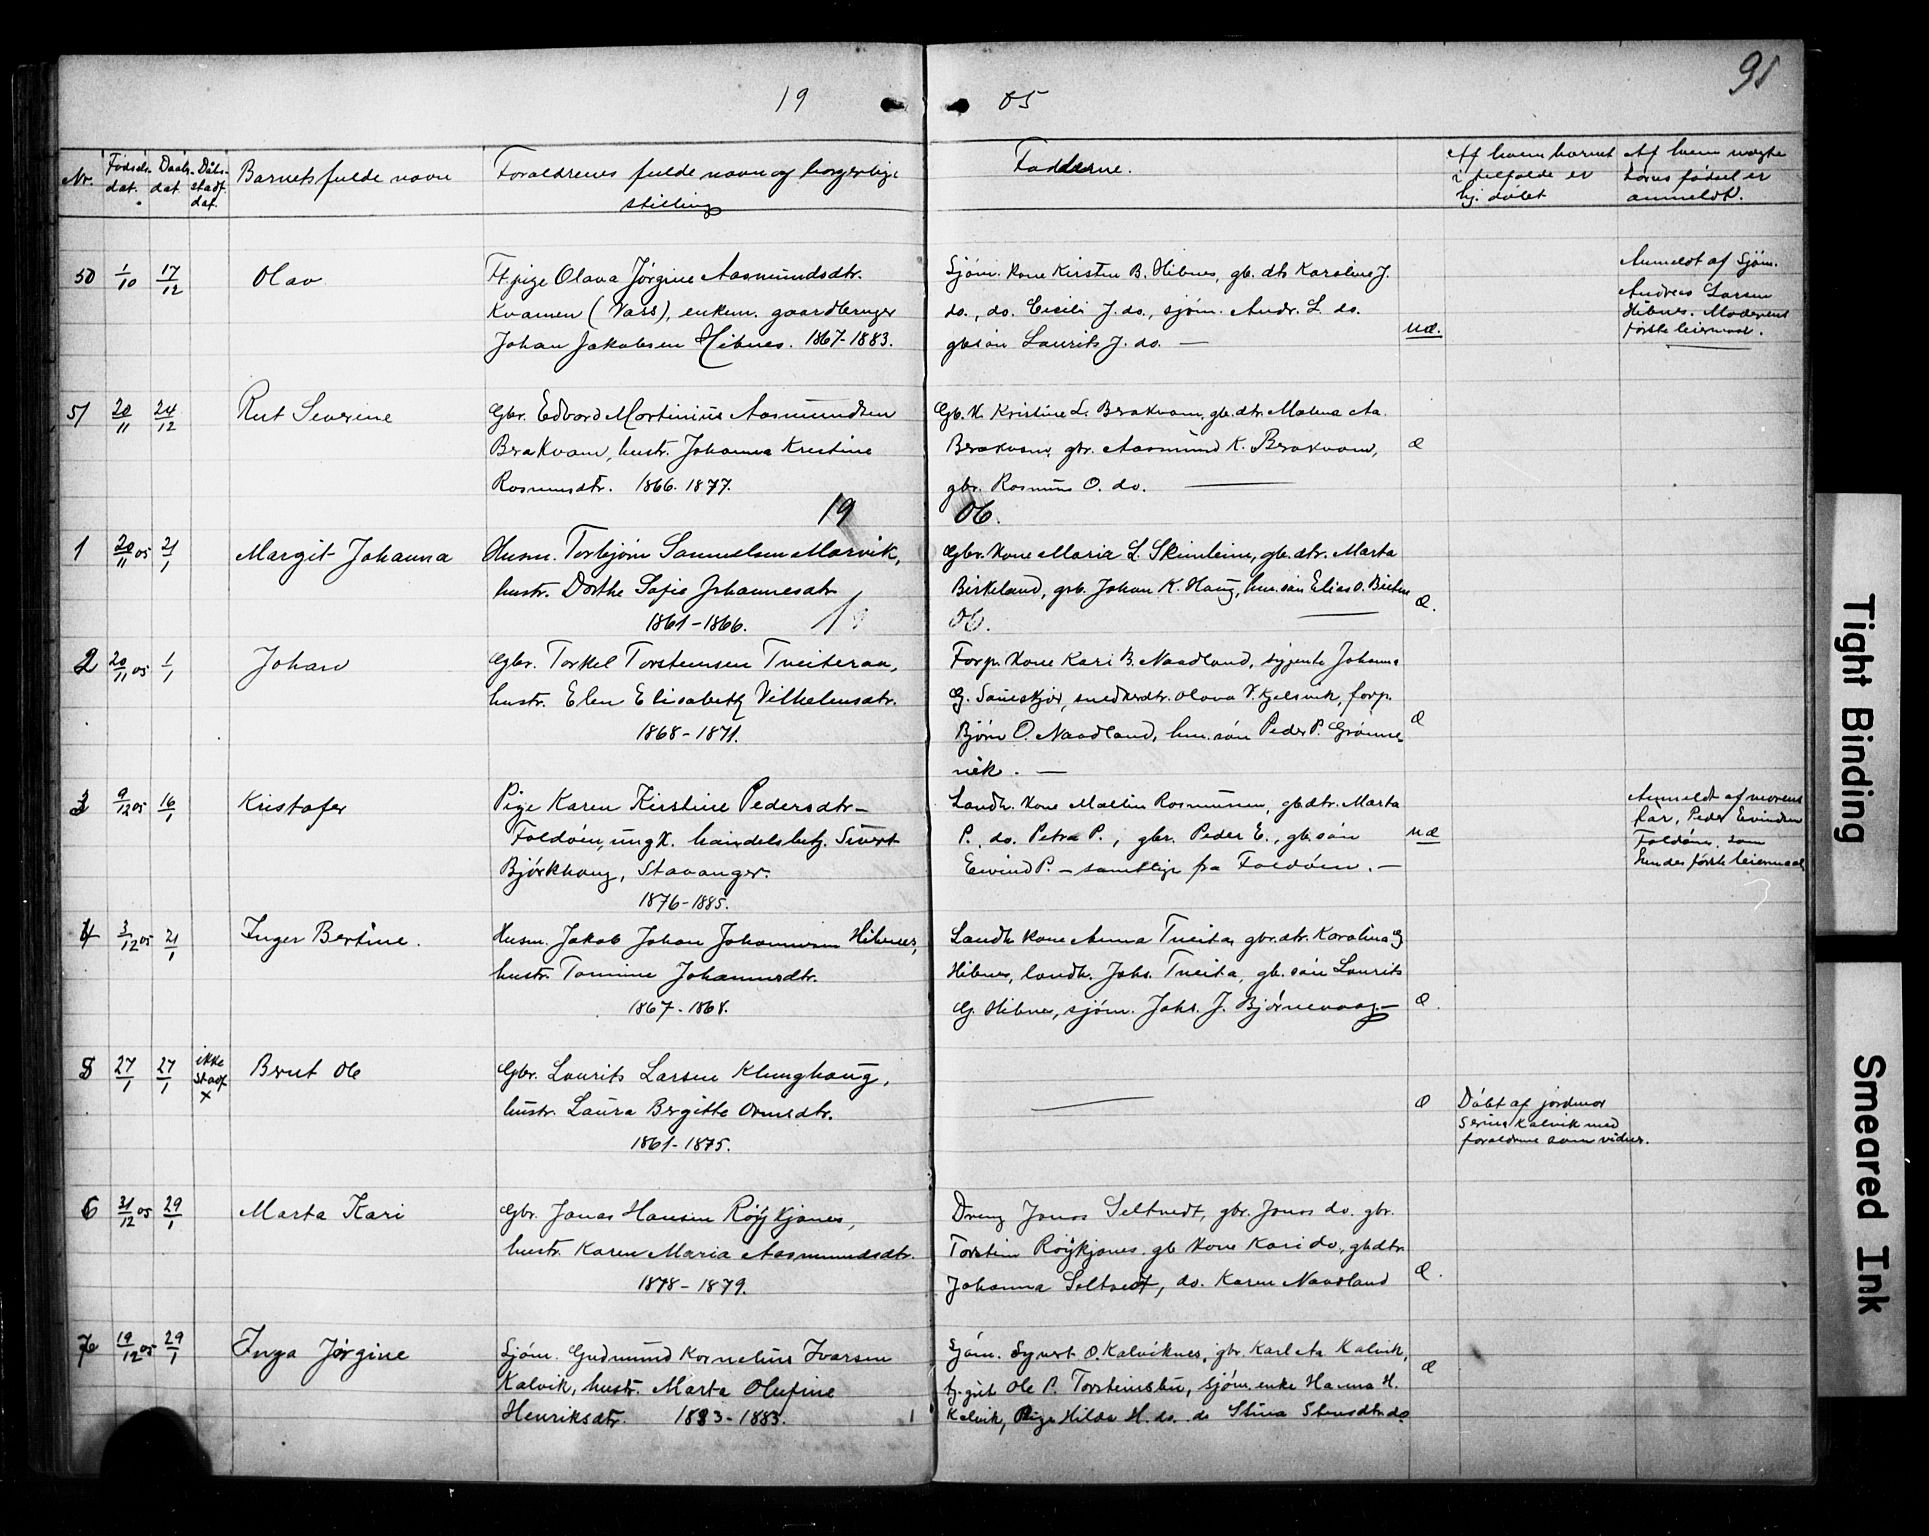 91
19 05
Nr. Fødsels dat. Daabs dat. Dåbs stadf. dat. Barnets fulde navn Forældrenes fulde navn og borgerlige stilling Fadderne. Af hvem barnet i tilfælde er hj. døbt Af hvem uægte barns fødsel er anmeldt.
50 1/10 17/12 Olav
Ft. pige Olava Jørgine Aasmundsdtr.
Kvamen (Vats), enkem. gaardbruger
Johan Jakobsen Hibnes. 1867-1883.
Sjøm. kone Kirsten B. Hibnes, gb. dtr Karoline J.
do., do. Cicili J. do., sjøm. Andr. L. do.
gb søn Laurits J. do. —
uæ.
Anmeldt af Sjøm.
Andreas Larsen
Hibnes. Moderens
første leiermaal.
51 20/11 24/12 Rut Severine
Gbr. Edvard Martinius Aasmundsen
Brekvam, hustr. Johanna Kristine
Rasmusdtr. 1866-1877.
Gb. k. Kristine L. Brekvam, gb. dtr. Malena Aa.
Brekvam, gbr. Aasmund K. Brekvam,
gbr. Rasmus O. do. —
æ
19 06.
1 20/11 05 21/1 Margit Johanna
Husm. Torbjørn Samuelsen Marvik,
hustr. Dorthe Sofie Johannesdtr
1861-1866.
Gbr. kone Maria L. Skimleim, gb. dtr. Marta
Birkeland, grb. Johan K. Haug, hm. søn Elias O.
æ.
19 06.
2 20/11 05 1/1 Johan
Gbr. Torkel Torstensen Tveiteraa,
hustr. Elen Elisabeth Vilhelmsdtr.
1868-1871.
Forp. kone Kari B. Naadland, syjente Johanna
G. Saueskjær, snedkerdtr. Olava V. Kjølevik, forp.
Bjørn O. Naadland, hm. søn Peder P. Grønne-
vik. —
æ
3 9/12 05 16/1 Kristofer
Pige Karen Kirstine Pedersdtr-
Foldøen, ungk. handelsbetj. Sivert
Bjørkhaug, Stavanger.
1876-1885.
Landh. kone Mallin Rasmussen, gb dtr. Marta
P. do. Petra P., gbr. Peder E., gb. søn
Eivind P. — samtlige fra Foldøen. —
uæ
Anmeldt af morens
far, Peder Eivindsen
Foldøen, som
hendes første leiermaal
4 3/12 05 21/1 Inger Bertine.
Husm. Jakob Johan Johannesen Hibnes,
hustr. Tomine Johannesdtr.
1867-1868.
Landh. kone Anna Tveita, gbr. dtr. Karolina G
Hibnes, landh. Johs. Tveita, gb. søn Laurits
G. Hibnes, sjøm. Johs. J. Bjørnevaag —
æ.
5 27/1 27/1 ikke stadf x Bernt Ole
Gbr. Laurits Larsen Klunghaug,
hustr. Laura Bergitte Ormsdtr.
1861-1875.
—
æ
Døbt af jordmor
Serina Kalvik med
forældrene som vidner.
6 31/12 05 29/1 Marta Kari
Gbr. Jonas Hansen Røykjanes,
hustr. Karen Maria Aasmundsdtr.
1878-1879.
Dreng Jonas Seltvedt, gbr. Jonas do. gbr.
Torstein Røykjanes. gb kone Kari do., gb dtr
Johanna Seltvedt, do. Karen Naadland
æ.
7 19/12 05 29/1 Inga Jørgine
Sjøm. Gudmund Kornelius Ivarsen
Kalvik, hustr. Marta Olufine
Henriksdtr. 1883-1883.
Sjøm. Syvert O. Kalviknes, gbr. Karl Aa Kalvik,
tj. gut Ole P. Torsteinsbu, sjøm. enke Hanna H.
Kalvik, Pige Hilda H. do. do Stina Stensdtr. do
æ
Tight Binding
Smeared Ink